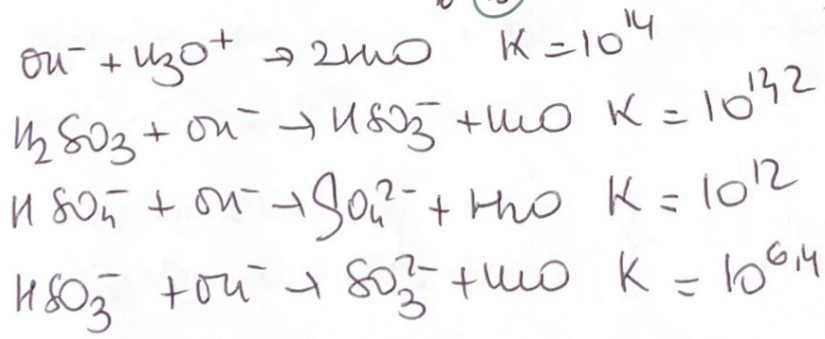 OH⁻ + H3O⁺ → 2H2O K = 10¹⁴
H2SO3 + OH⁻ → HSO3⁻ + H2O K = 10¹²,²
HSO4⁻ + OH⁻ → SO4²⁻ + H2O K = 10¹²
HSO3⁻ + OH⁻ → SO3²⁻ + H2O K = 10⁶,⁴